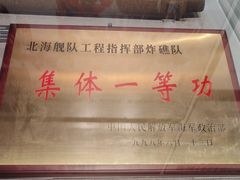 北海舰队工程指挥部炸礁队
集体一等功
中国人民解放军海军政治部
一九九八年八月二十二日